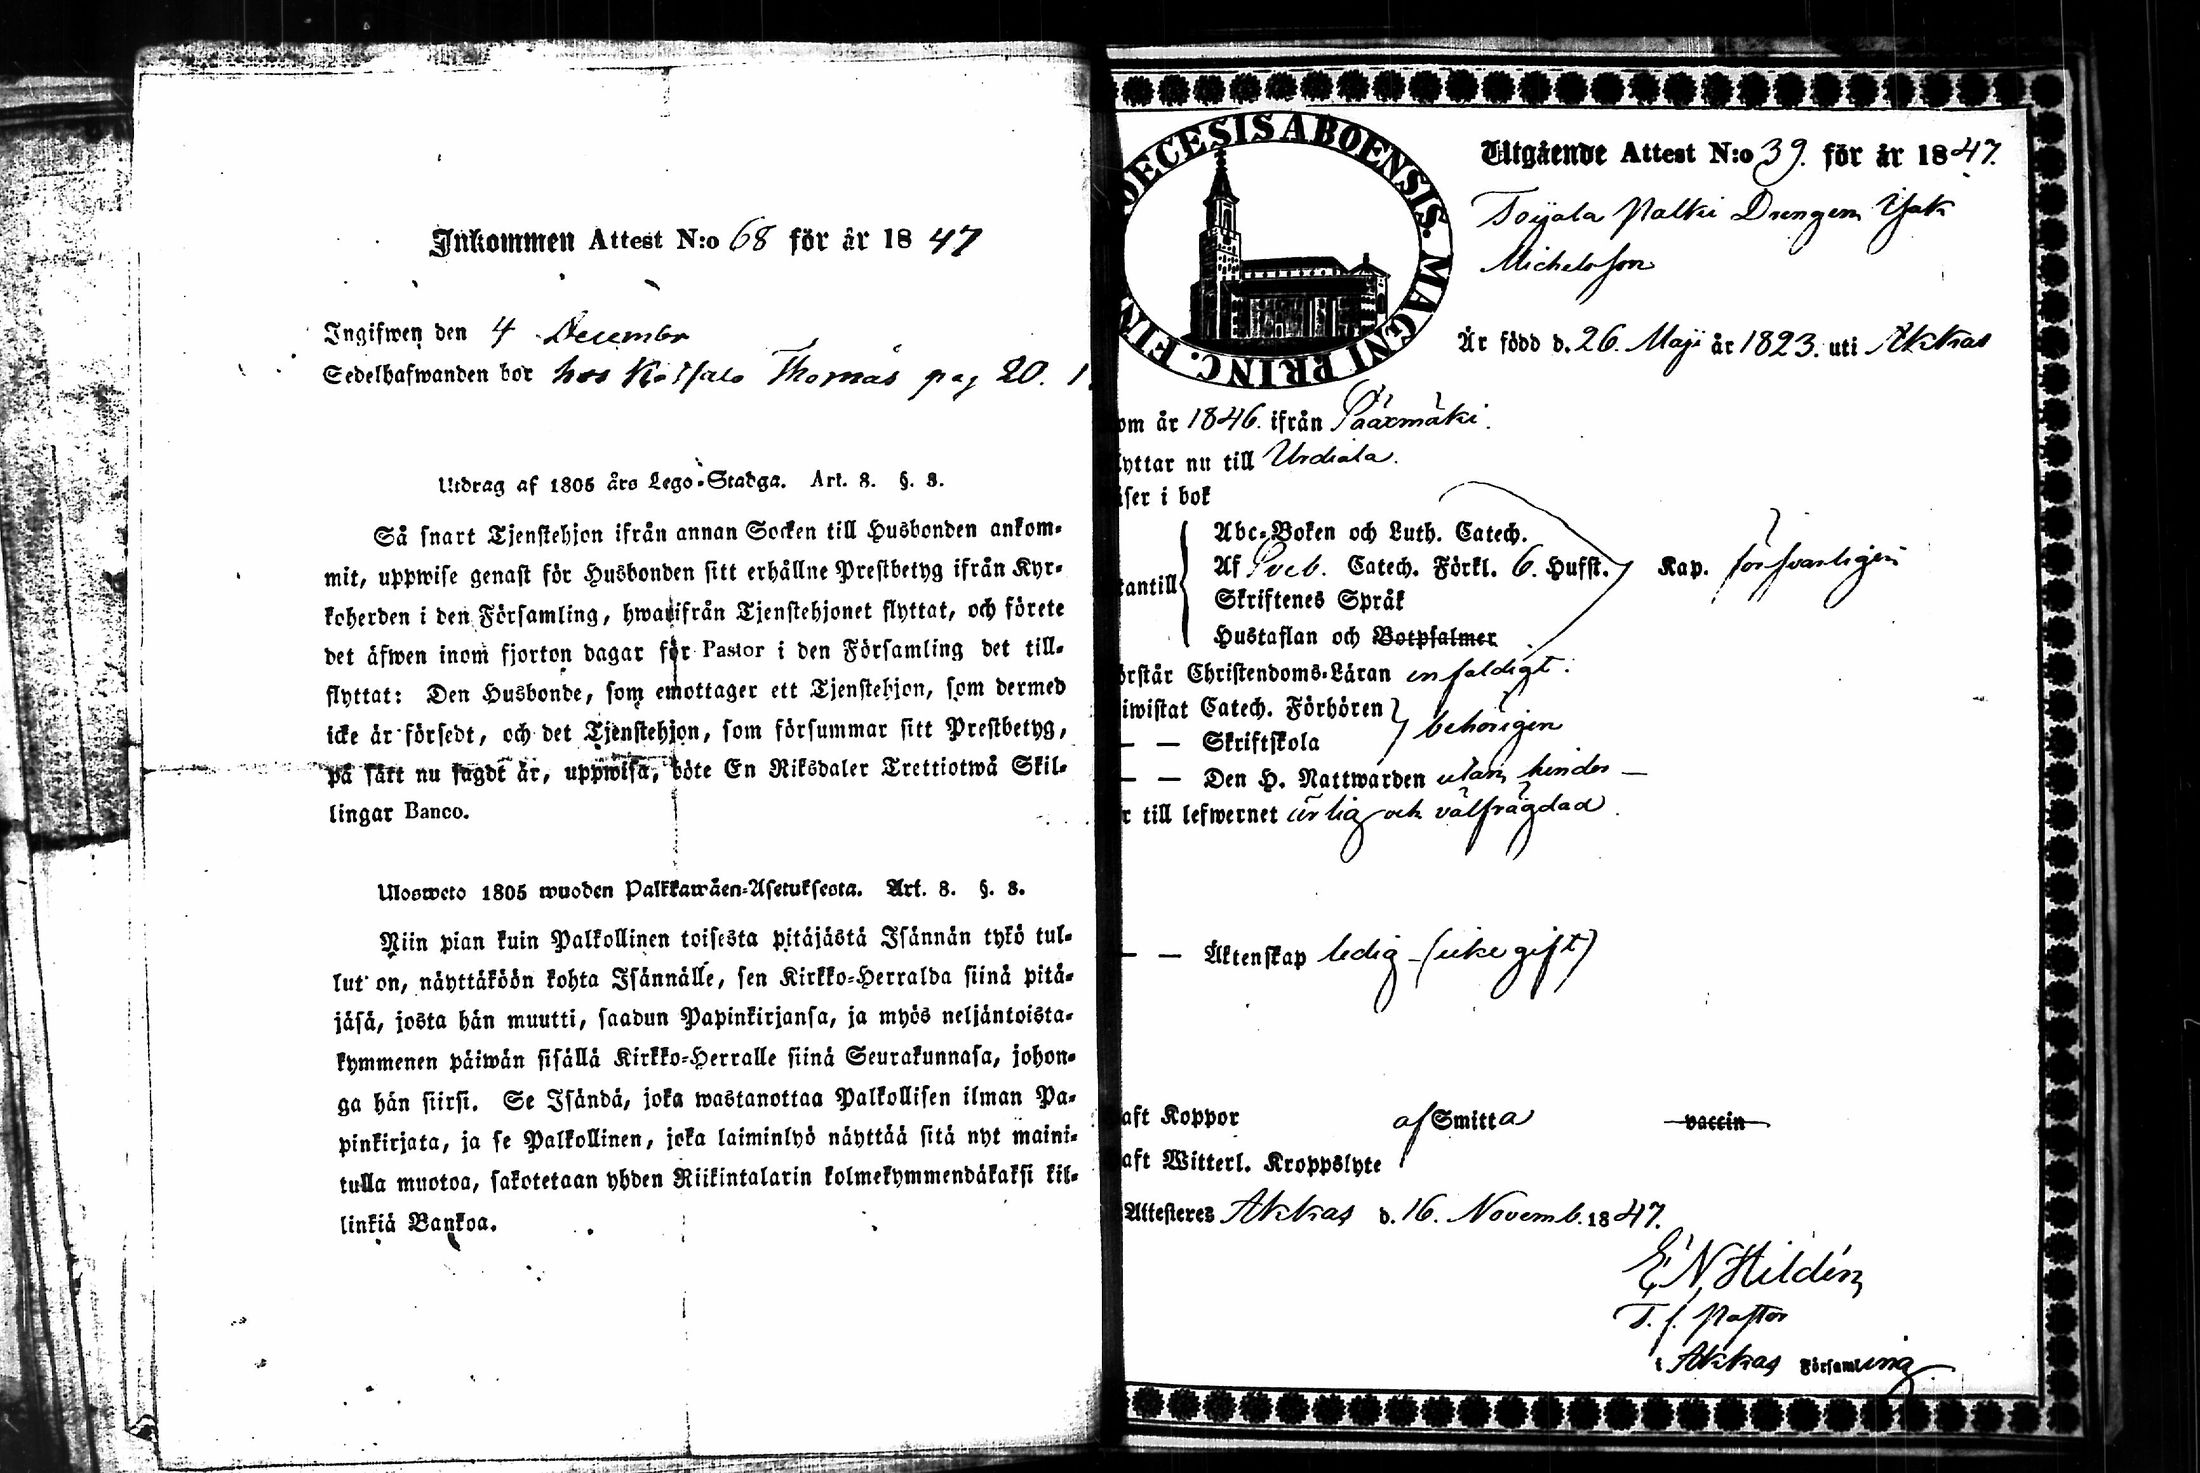 Inkommen Attest N:o 68 för år 1847
Ingifwen den 4 Decembr
Sedelhafwanden bor hos Thomas pag 20.
Utdrag af 1805 års Lego-Stadga. Art. 8. §. 3.
Så snart Tjenstehjon ifrån annan Socken till Husbonden ankom-
mit, uppwise genast för Husbonden sitt erhållne Prestbetyg ifrån Kyr-
koherden i den Församling, hwarifrån Tjenstehjonet flyttat, och förete
det äfwen inom fjorton dagar för Pastor i den Församling det till-
flyttat: Den Husbonde, som emottager ett Tjenstehjon, som dermed
icke är försedt, och det Tjenstehjon, som försummar sitt Prestbetyg,
på sätt nu sagdt är, uppwisa, böte En Riksdaler Trettiotwå Skil-
lingar Banco.
Ulosweto 1805 wuoden Palkkawäen-Asetuksesta. Art. 8. §. 3.
Niin pian kuin Palkollinen toisesta pitäjästä Isännän tykö tul-
lut on, näyttäköön kohta Isännälle, sen Kirkko-Herralda siinä pitä-
jäsä, josta hän muutti, saadun Papinkirjansa, ja myös neljäntoista-
kymmenen päiwän sisällä Kirkko-Herralle siinä Seurakunnasa, johon-
ga hän siirsi. Se Isändä, joka wastanottaa Palkollisen ilman Pa-
pinkirjata, ja se Palkollinen, joka laiminlyö näyttää sitä nyt maini-
tulla muotoa, sakotetaan yhden Riikintalarin kolmekymmendäkaksi kil-
linkiä Bankoa.
DECESIS ABOENSIS. MAGNI PRINC. FIN
Utgående Attest N:o 39. för år 1847.
Toijala Palki Drengen Isak
Michelsson
Är född d. 26. Maji år 1823. uti Akkas
om år 1846. ifrån Pääxmäki.
lyttar nu till Urdiala.
äser i bok
Abc-Boken och Luth. Catech.
Af Sveb. Catech. Förkl. 6. Hufst. Kap. försvarligen
antill
Skriftenes Språk
Hustaflan och Botpsalmer
örstår Christendoms-Läran enfaldigt.
iwistat Catech. Förhören
— — Skriftskola behörigen
— — Den H. Nattwarden utan hinder —
r till lefwernet ärlig och välfrägdad.
— — Äktenskap ledig - (icke gift)
aft Koppor af Smitta vaccin
aft Witterl. Kroppslyte
Attesteres Akkas d. 16. Novemb. 1847.
E N Hildén
T. f. Pastor
i Akkas Församling